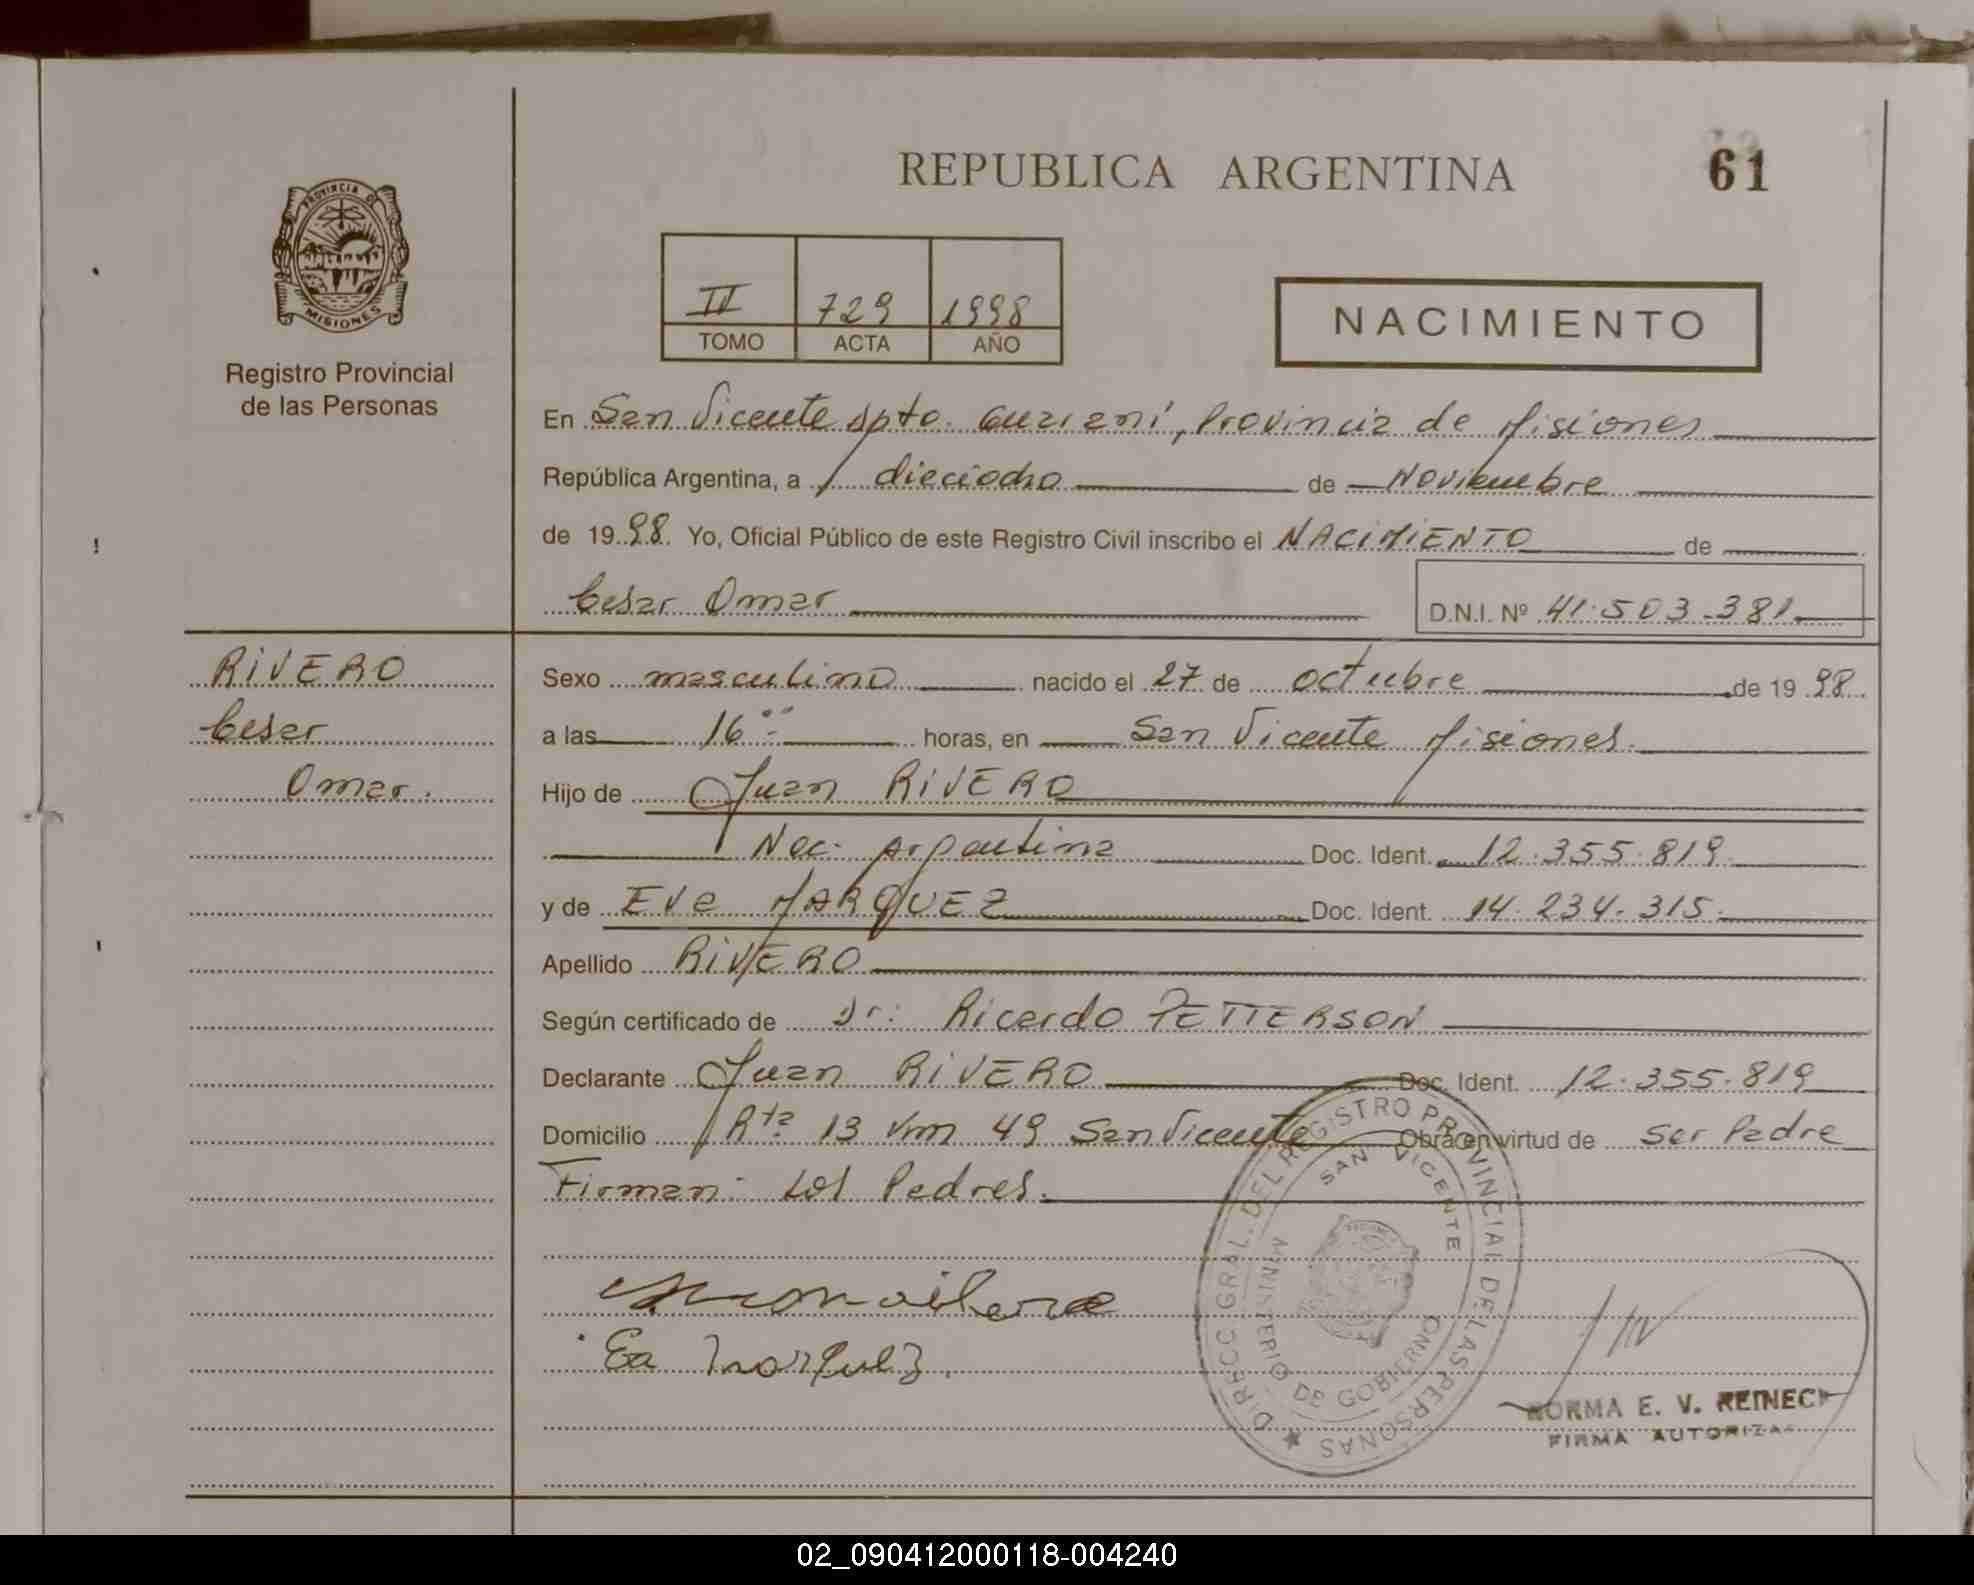 REPUBLICA ARGENTINA
61
PROVINCIA DE
MISIONES
Registro Provincial
de las Personas
II 729 1998
TOMO ACTA AÑO
NACIMIENTO
En San Vicente Dpto. Guaraní, Provincia de Misiones
República Argentina, a dieciocho de Noviembre
de 1998. Yo, Oficial Público de este Registro Civil inscribo el NACIMIENTO de
Cesar Omar
D.N.I. Nº 41.503.381
RIVERO
Cesar
Omar.
Sexo masculino nacido el 27 de octubre de 1998.
a las 16 horas, en San Vicente Misiones.
Hijo de Juan RIVERO
Nac. Argentina Doc. Ident. 12.355.819
y de Eva MARQUEZ Doc. Ident. 14.234.315.
Apellido RIVERO
Según certificado de Dr: Ricardo PETTERSON
Declarante Juan RIVERO Doc. Ident. 12.355.819
Domicilio Rta 13 Km 49 San Vicente Obra en virtud de ser Padre
Firman: Los Padres.
Ea Marquez.
DIRECC. GRAL. DEL REGISTRO PROVINCIAL DE LAS PERSONAS
SAN VICENTE
MINISTERIO DE GOBIERNO
NORMA E. V. REINECK
FIRMA AUTORIZA
02_090412000118-004240